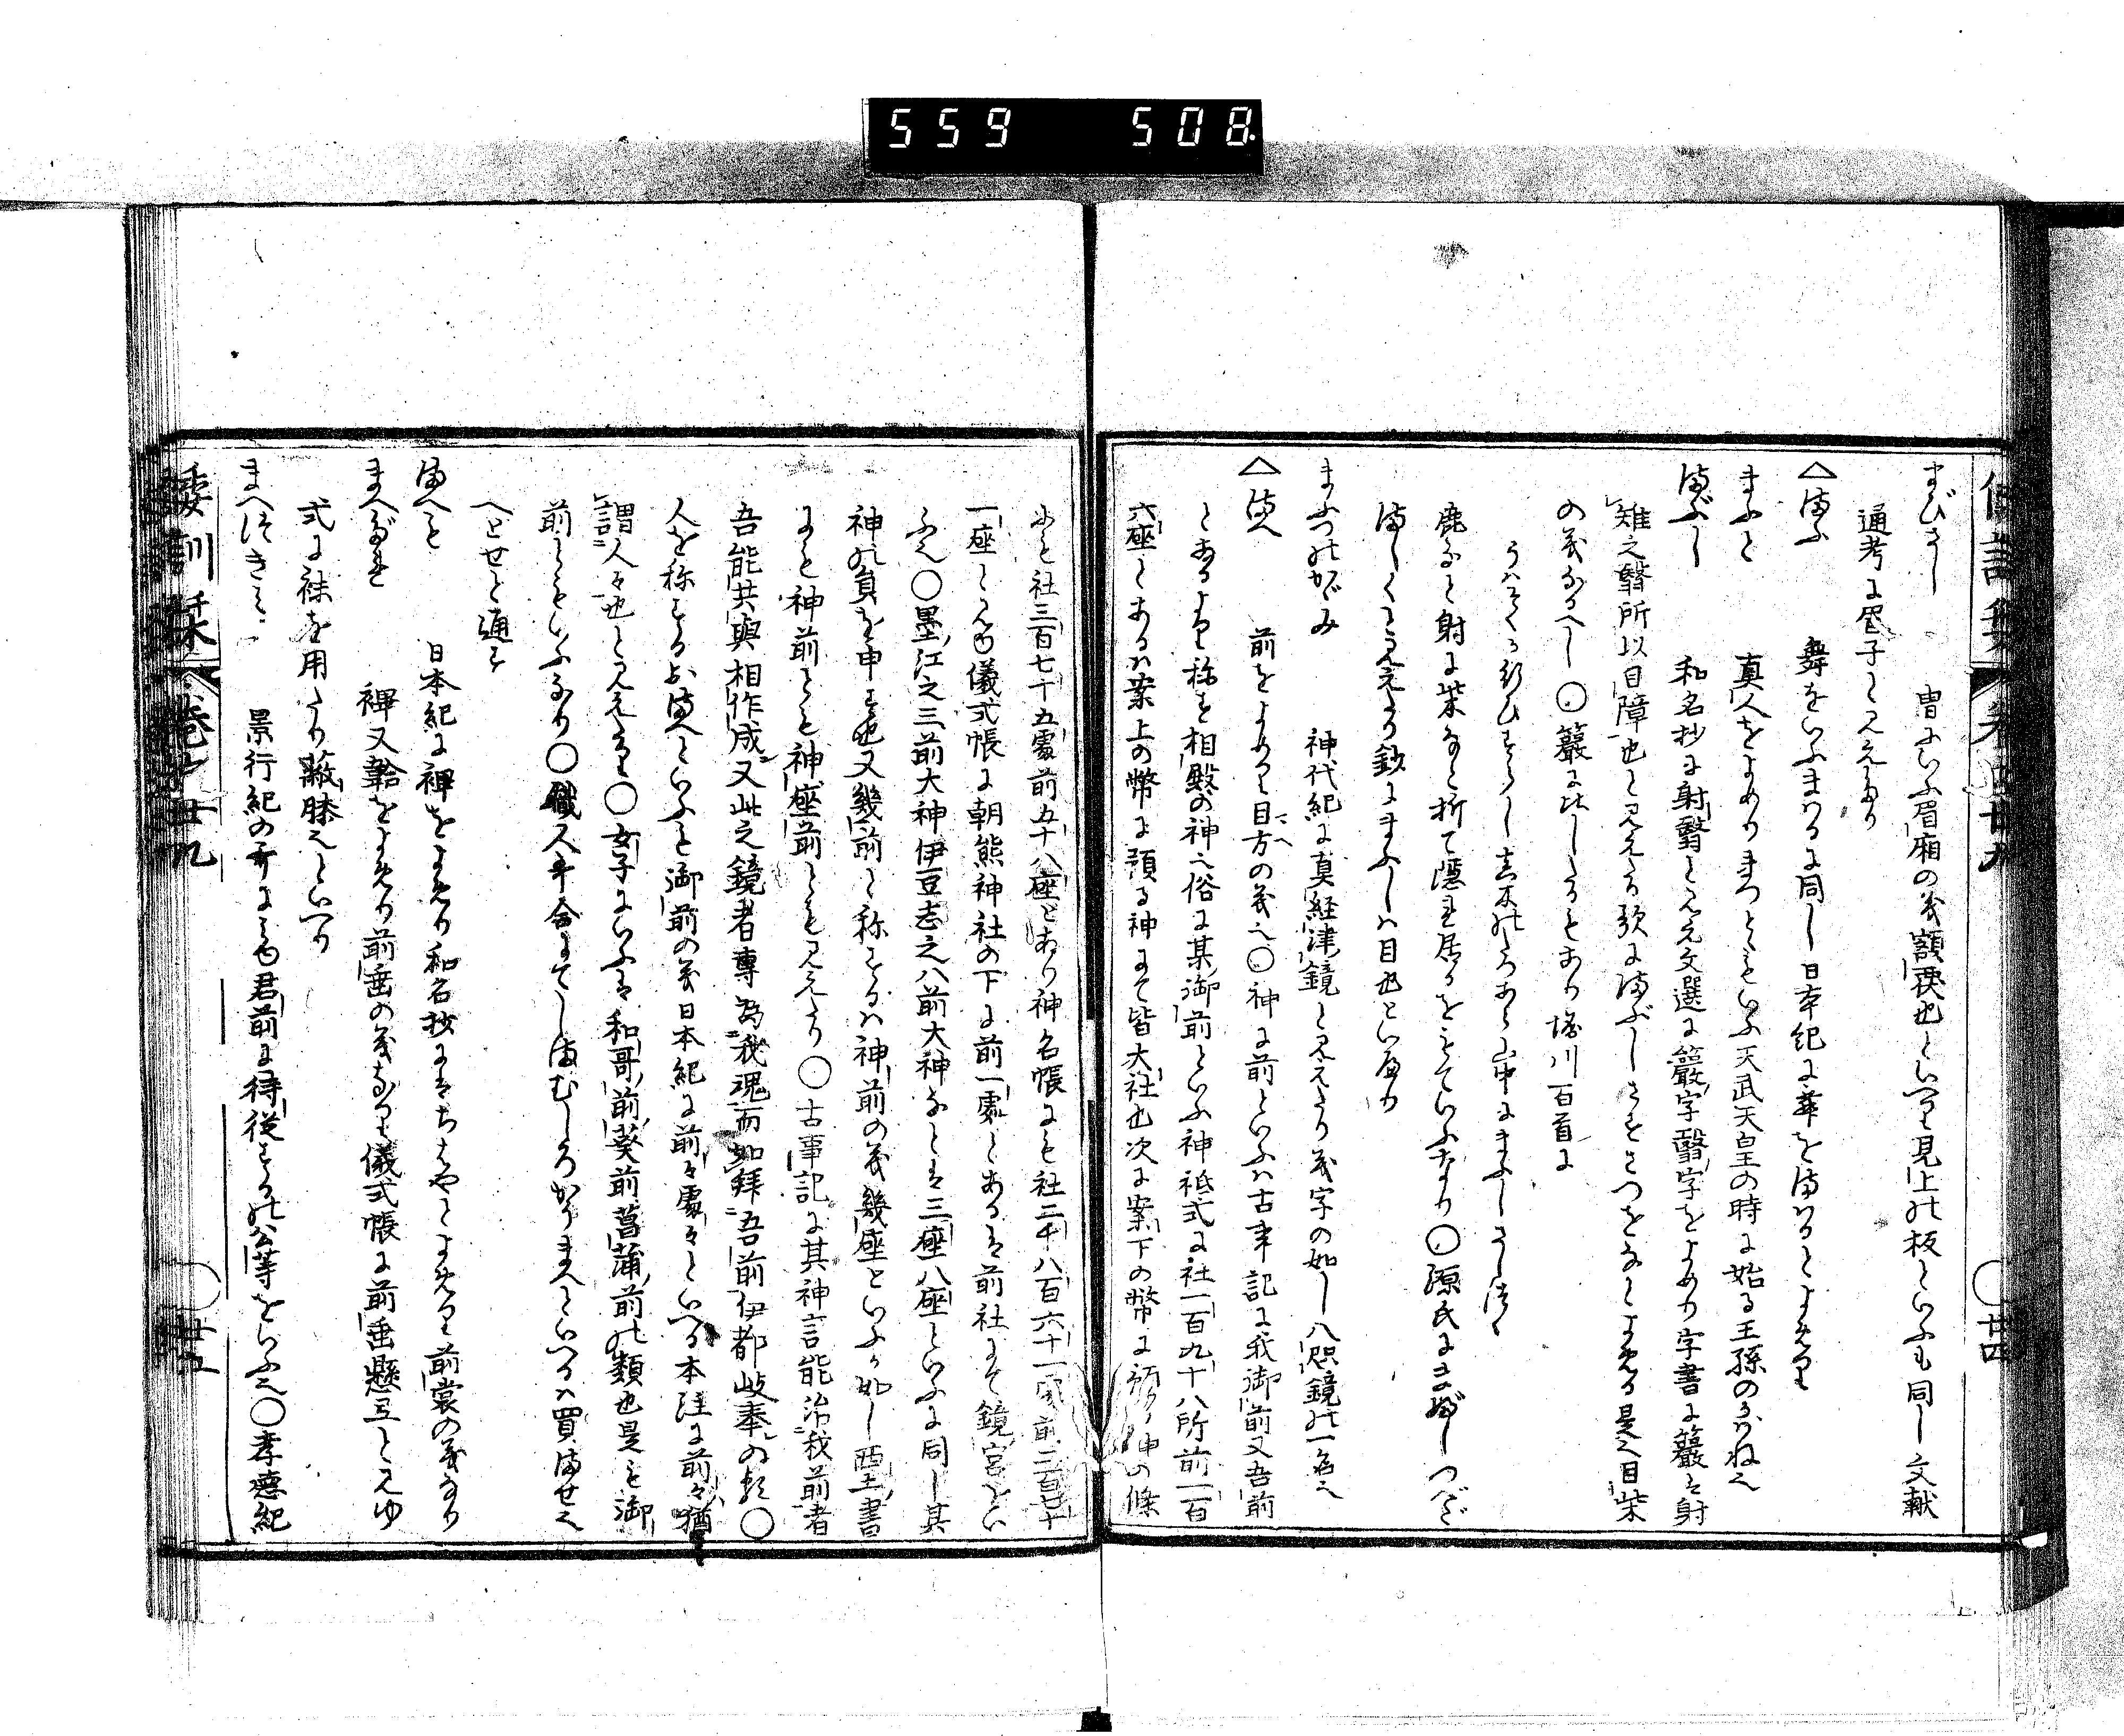 559 508
まびさし 冑にいふ眉廂の義額硬也といへり見上の板といふも同し文献
通考に壓子と見えたり
△まふ 舞をいふまはるに同し日本紀に舞をまはるとよめり
まふと 真人をよめりまつとゝもいふ天武天皇の時に始る王孫のかばね也
まぶし 和名抄に射翳と見え文選に䉷字翳字をよめり字書に䉷は射
雉之翳所以目障也と見えたる歌にまぶしさすさつをなとよめる是也目柴
の義なるへし○䉷に比したるもあり堀川百首に
鹿なと射に柴なと折て隠れ居るをもていふなり○源氏にまぶしつべた
ましくと見えたり鈔にまふしは目也といへり
まふつのかゞみ 神代紀に真経津鏡と見えたり義字の如し八咫鏡の一名也
△まへ 前をよめり目方の義也○神に前といふは古事記に我御前又吾前
とあるより称す相殿の神也俗に某御前といふ神祇式に社一百九十八所前一百
六座とあるは案上の幣に預る神にて皆大社也次に案下の幣に預る神の條
にも社三百七十五處前五十八座とあり神名帳にも社二千八百六十一處前二百七十
一座と見ゆ儀式帳に朝熊神社の下に前一處とあるは前社にて鏡宮をい
ふ也○墨江之三前大神伊豆志之八前大神なとは三座八座といふに同し其
神の員を申す也又幾前と称するは神前の義幾座といふか如し西土書
にも神前とも神座前とも見えたり○古事記に其神言能治我前者
吾能共與相作成又此之鏡者専為我魂而如拜吾前伊都岐奉の類○
人を称するおまへといふも御前の義日本紀に前々處々といへる本注に前々猶
謂人々也と見えたり○女子にいふは和哥前葵前菖蒲前の類也是も御
前ともいふなり○職人歌合にてしまむしろかうまへといへるは買ませ也
へとせと通す
まへも 日本紀に襅をよめり和名抄にはちはやとよめり前裳の義なり
まへだれ 襅又韐をよめり前垂の義なり儀式帳に前垂懸互と見ゆ
式に袜を用たり蔽膝也といへり
まへつきみ 景行紀の哥にみゆ君前に侍従するの公等をいふ也○孝徳紀
倭訓栞 巻廿九
廿四